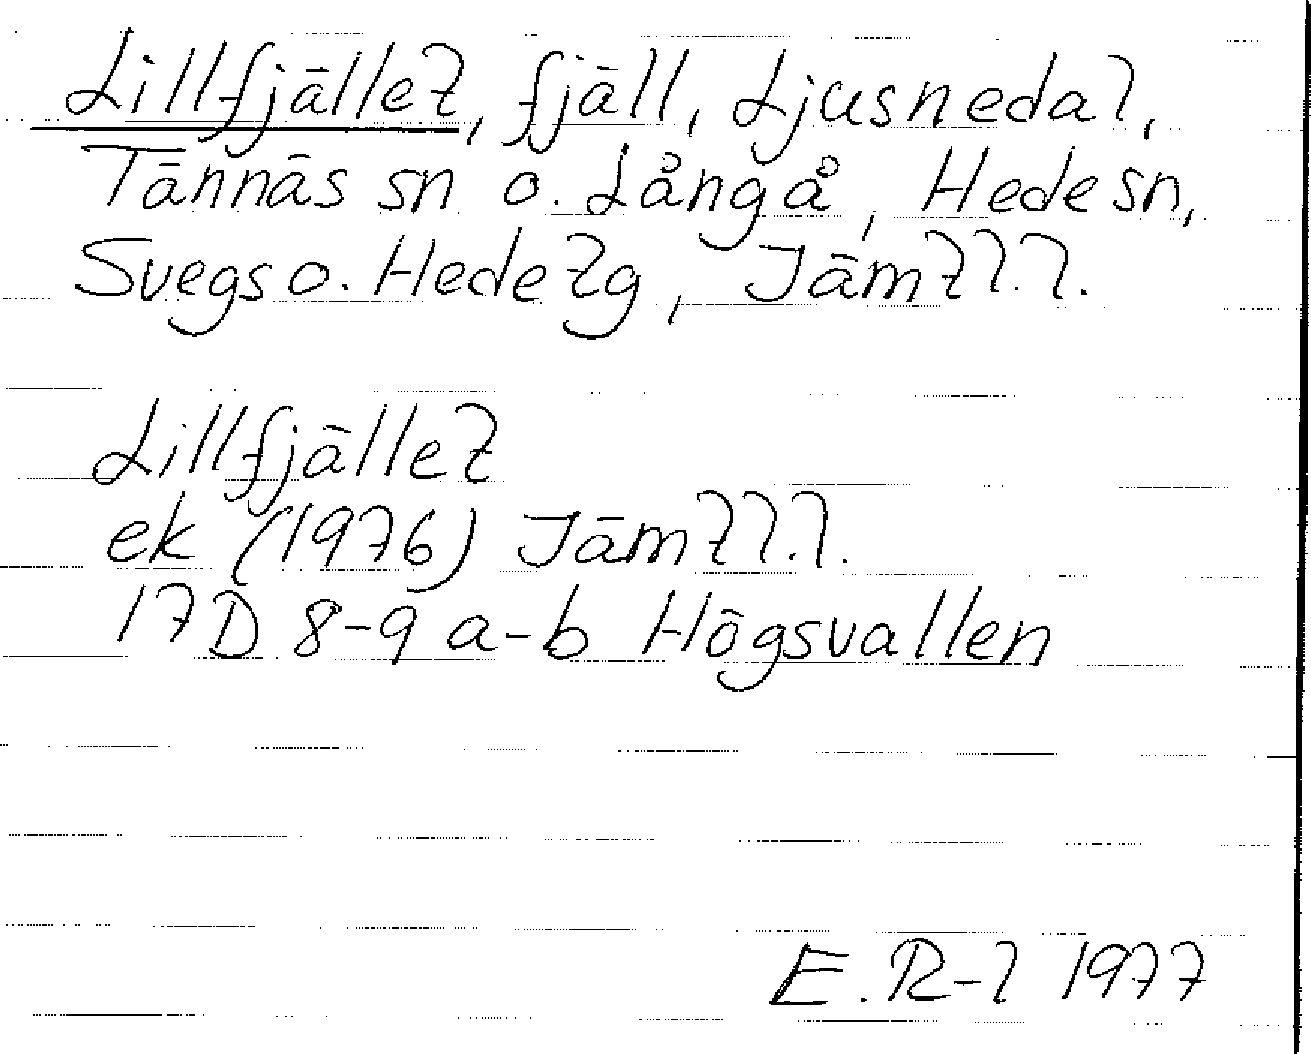 Lillfjället, fjäll, Ljusnedal,
Tännäs sn o. Långå, Hede sn,
Svegs o. Hede tg, Jämtl.l.
Lillfjället
ek (1976) Jämtl.l.
17D 8-9 a-b Högsvallen
E.R-l 1977